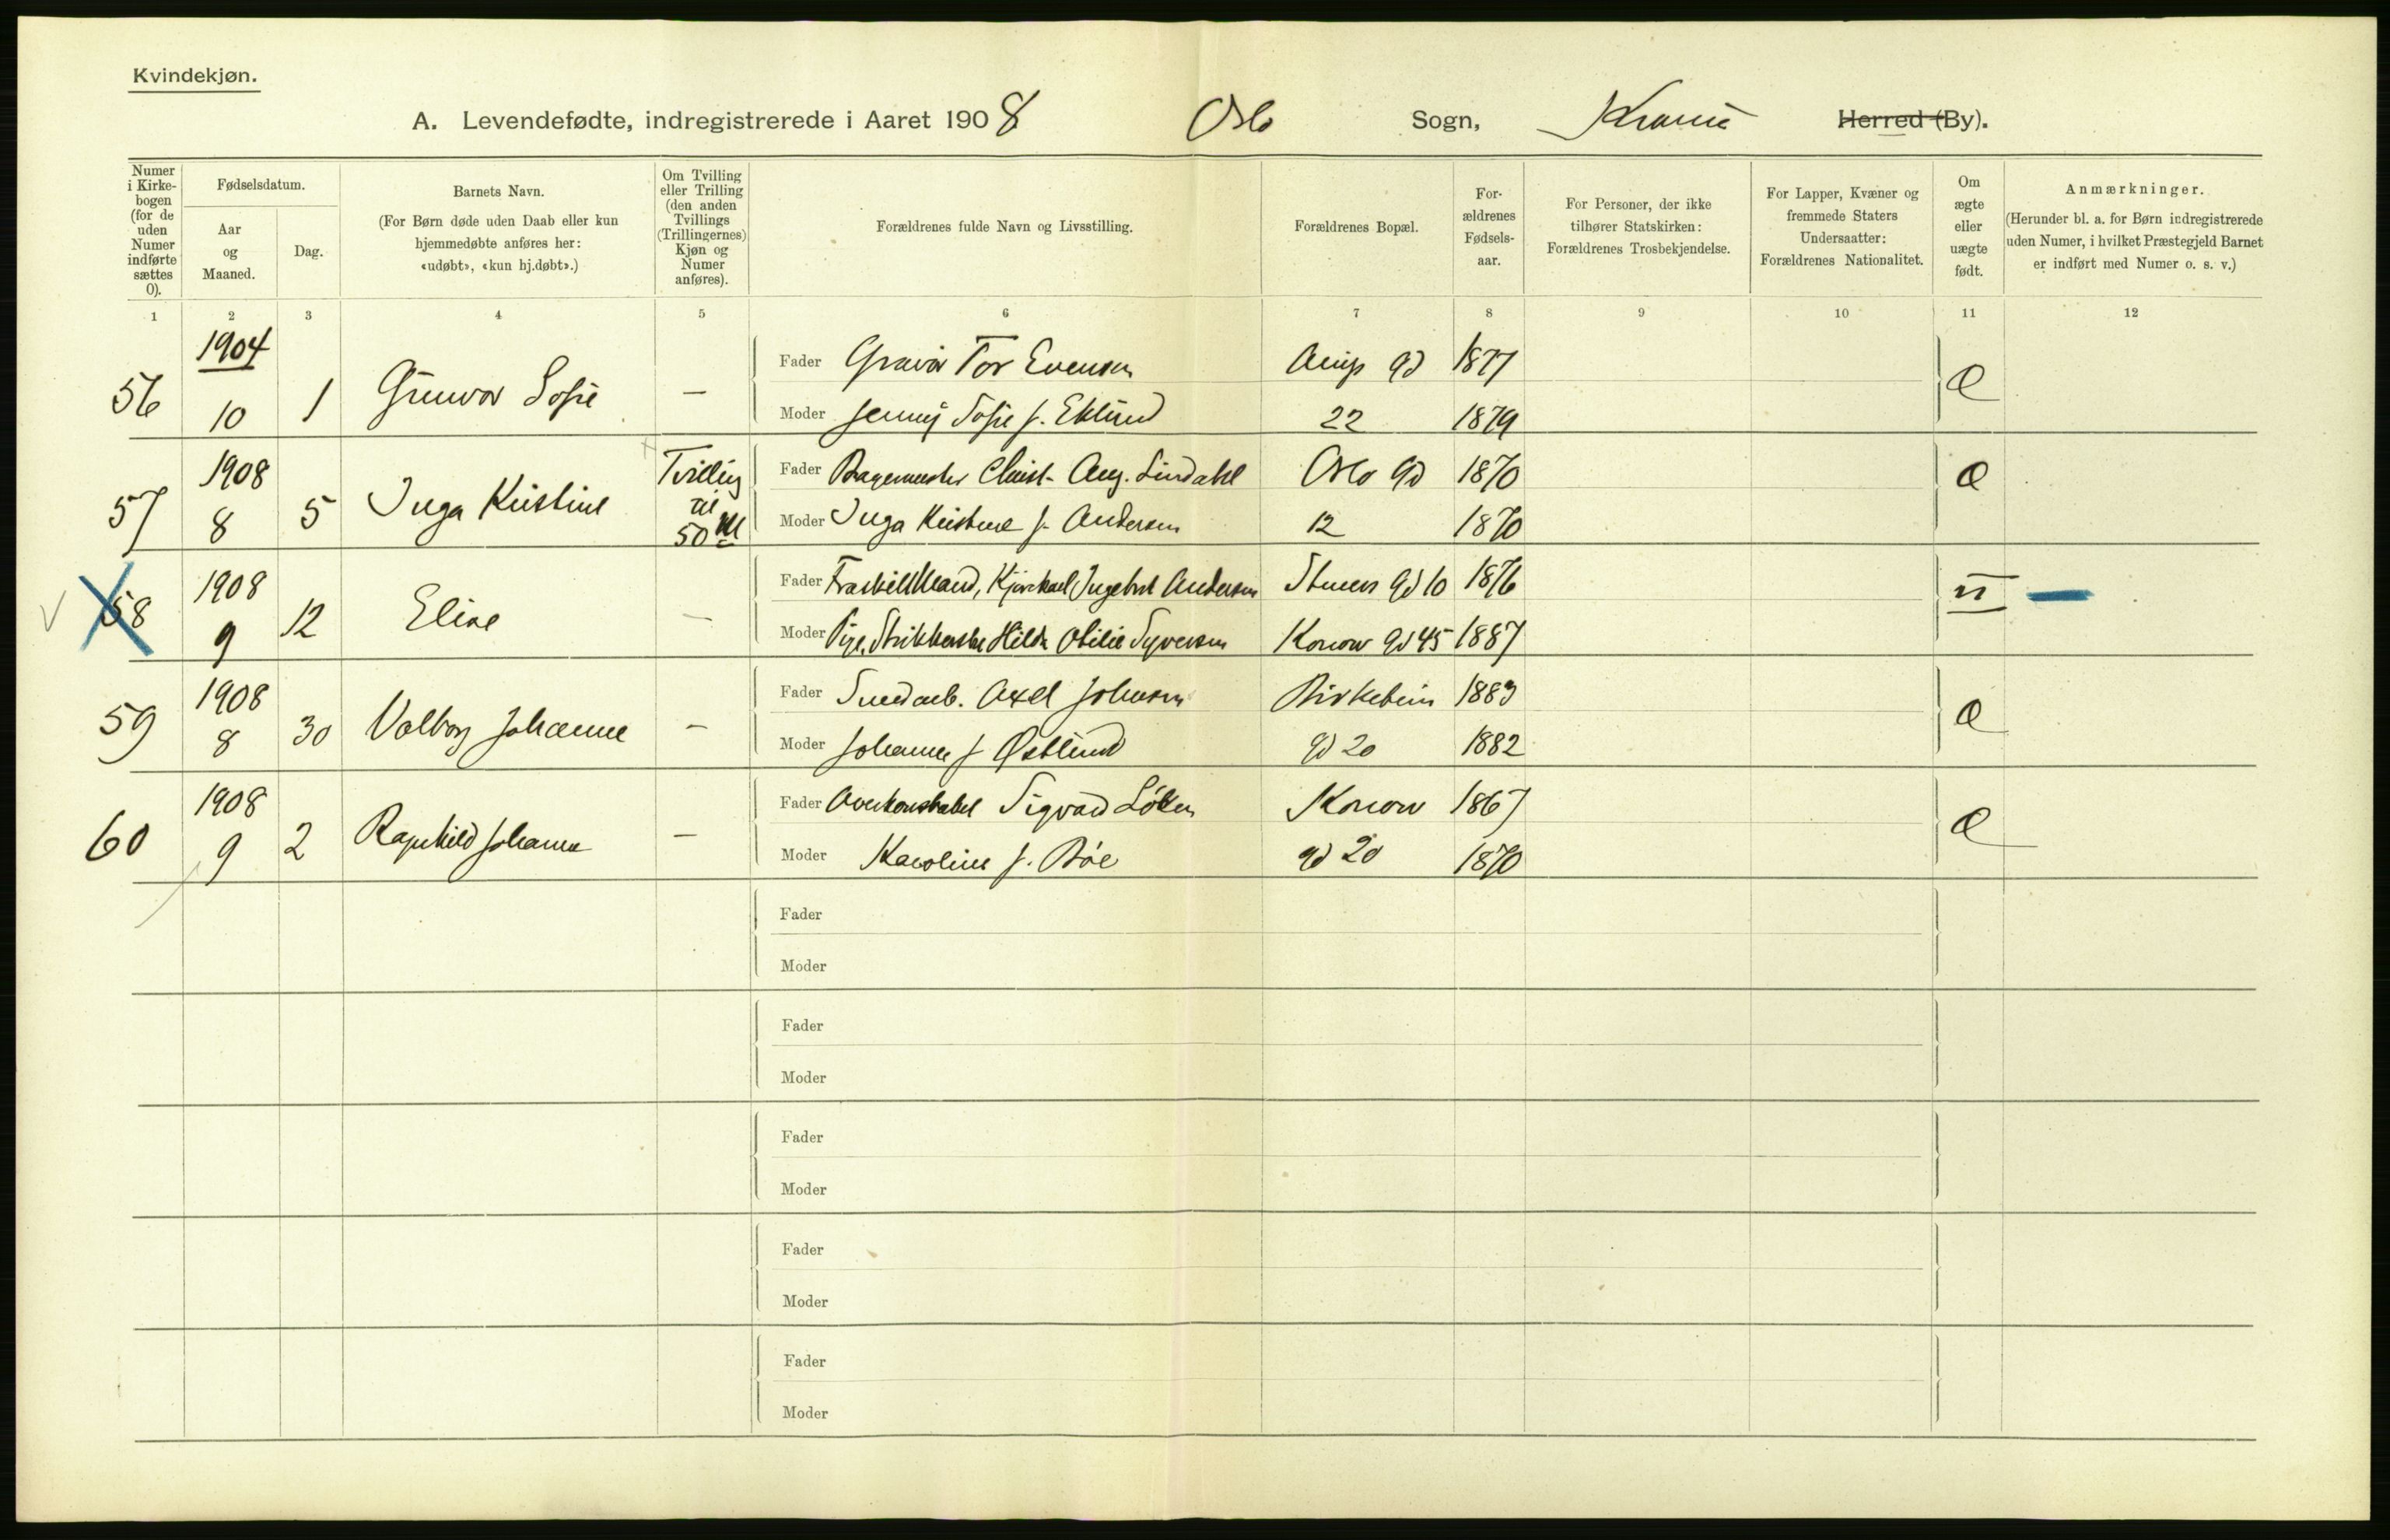 Kvindekjøn.
A. Levendefødte, indregistrerede i Aaret 1908 Oslo Sogn, Krania Herred (By).
Numer
i Kirke-
bogen
(for de
uden
Numer
indførte
sættes
0).
Fødselsdatum.
Aar
og
Maaned.
Dag.
Barnets Navn.
(For Børn døde uden Daab eller kun
hjemmedøbte anføres her:
«udøbt», «kun hj.døbt».)
Om Tvilling
eller Trilling
(den anden
Tvillings
(Trillingernes)
Kjøn og
Numer
anføres).
Forældrenes fulde Navn og Livsstilling.
Forældrenes Bopæl.
For-
ældrenes
Fødsels-
aar.
For Personer, der ikke
tilhører Statskirken:
Forældrenes Trosbekjendelse.
For Lapper, Kvæner og
fremmede Staters
Undersaatter:
Forældrenes Nationalitet.
Om
ægte
eller
uægte
født.
Anmærkninger.
(Herunder bl. a. for Børn indregistrerede
uden Numer, i hvilket Præstegjeld Barnet
er indført med Numer o. s. v.)
1 2 3 4 5 6 7 8 9 10 11 12
1904
56 10 1 Gunvor Sofie —
Fader Gravør Tor Evensen gd 1877
Moder Jenny Sofie f. Eklund 22 1879
Æ
1908
57 8 5 Inga Kristine
Tvilling
til
50 M
Fader Bagermester Christ. Aug. Lindahl Oslo gd 1870
Moder Inga Kristine f. Andersen 12 1870
Æ
1908
58 9 12 Elise —
Fader Fraskilt Mand, Kjørekarl Ingebret Andersen gd 10 1876
Moder Pige, Strikkerske Hilda Otilie Syversen Konow gd 45 1887
u —
1908
59 8 30 Valborg Johanne —
Fader Smedarb. Axel Johnsen Birkebein 1883
Moder Johanne f Østlund gd 20 1882
Æ
1908
60 9 2 Ragnhild Johanne —
Fader Overkonstabel Sigvard Løken Konow 1867
Moder Karoline f. Bøe gd 20 1870
Æ
Fader
Moder
Fader
Moder
Fader
Moder
Fader
Moder
Fader
Moder